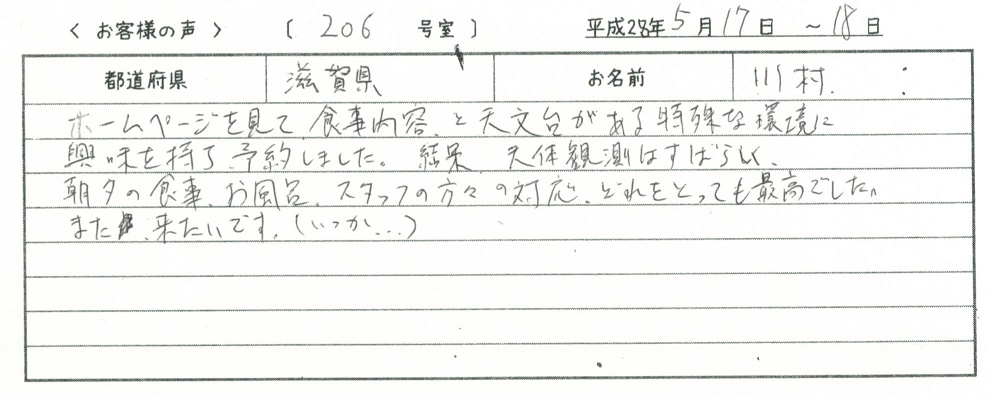 < お客様の声 > [ 206 号室 ] 平成28年5月17日 ～18日
都道府県 滋賀県 お名前 川村
ホームページを見て、食事内容、と天文台がある特殊な環境に
興味を持ち予約しました。 結果、天体観測はすばらしく、
朝夕の食事、お風呂、スタッフの方々の対応、どれをとっても最高でした。
また、来たいです。(いつか...)